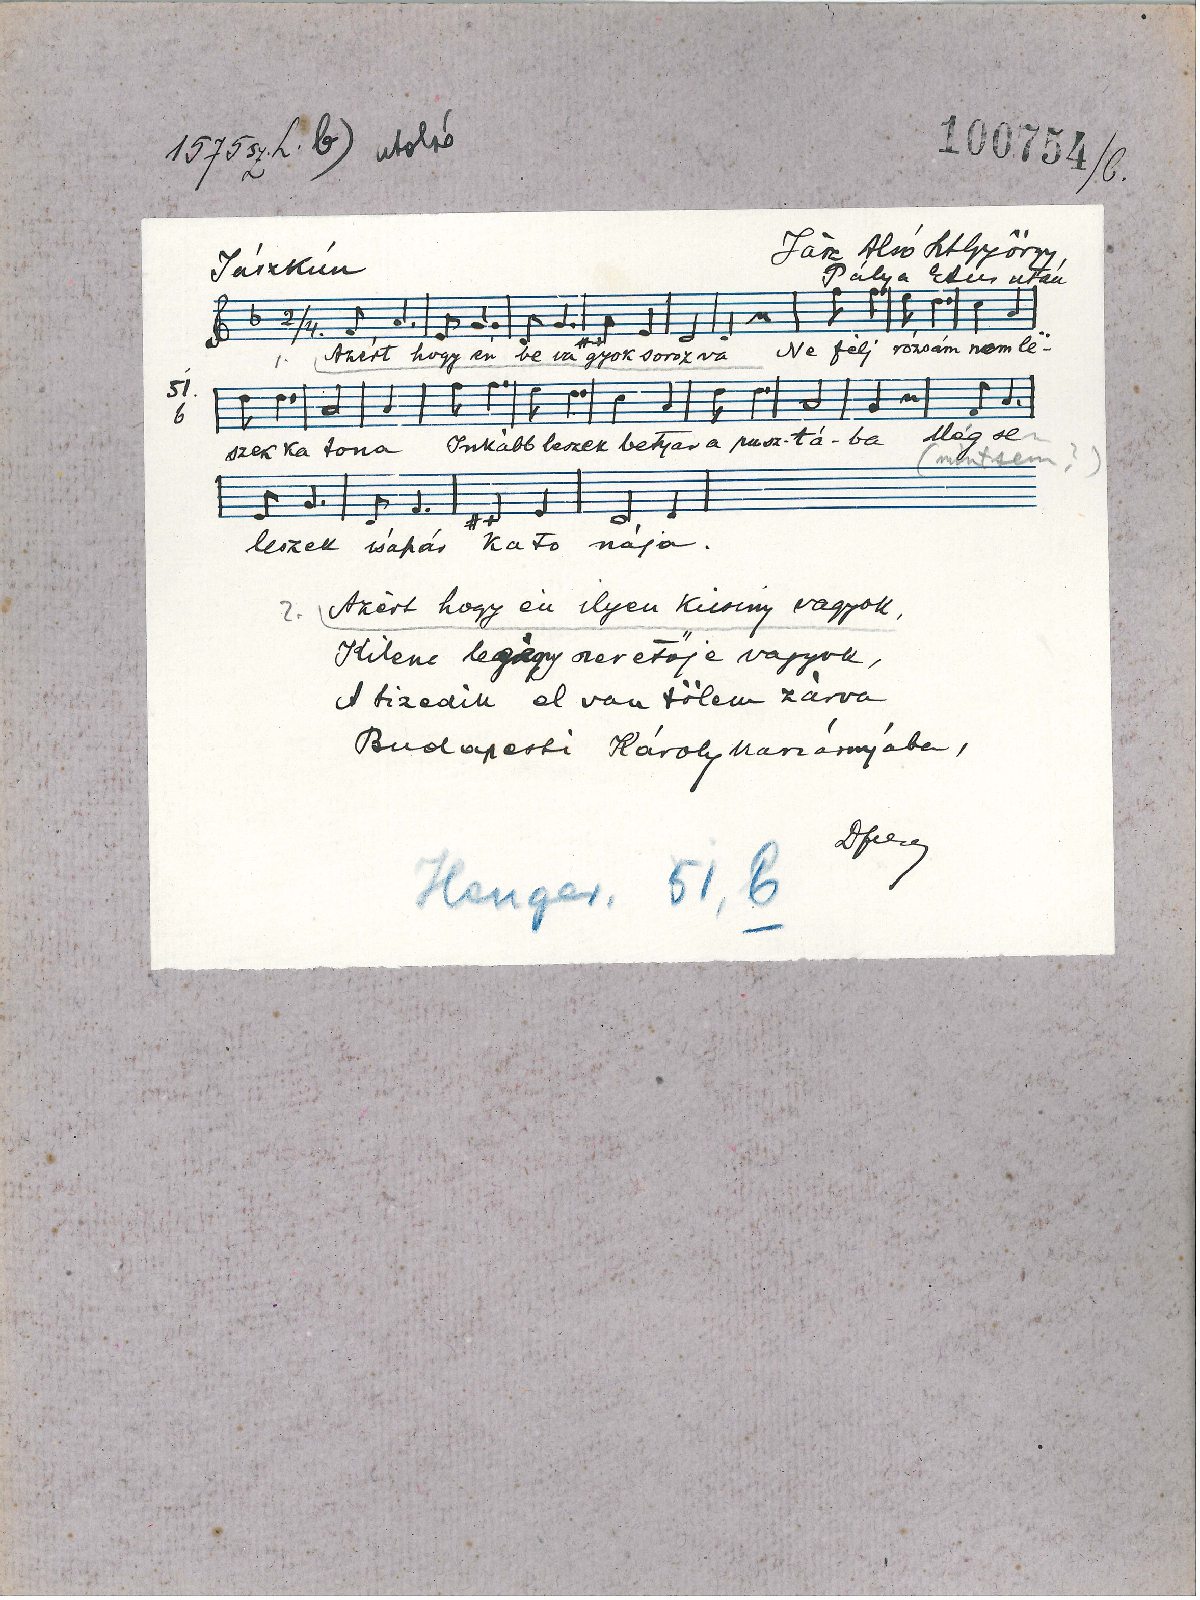 1575 sz. h. b) utolsó
100754/b.
Jászkún
Jász Alsó SztGyörgy,
Pálya Etus után
2/4.
1. Azért hogy én be va gyok soroz va Ne félj rózsám nem lë-
51.
6
szek ka tona Inkább leszek betyár a pusz-tá-ba Még se
(mint sem?)
leszek császár ka to nája.
2. Azért hogy én ilyen kicsiny vagyok,
Kilenc legény szeretője vagyok,
A tizedik el van tőlem zárva
Budapesti Károly kaszárnyába,
Henger. 51, b